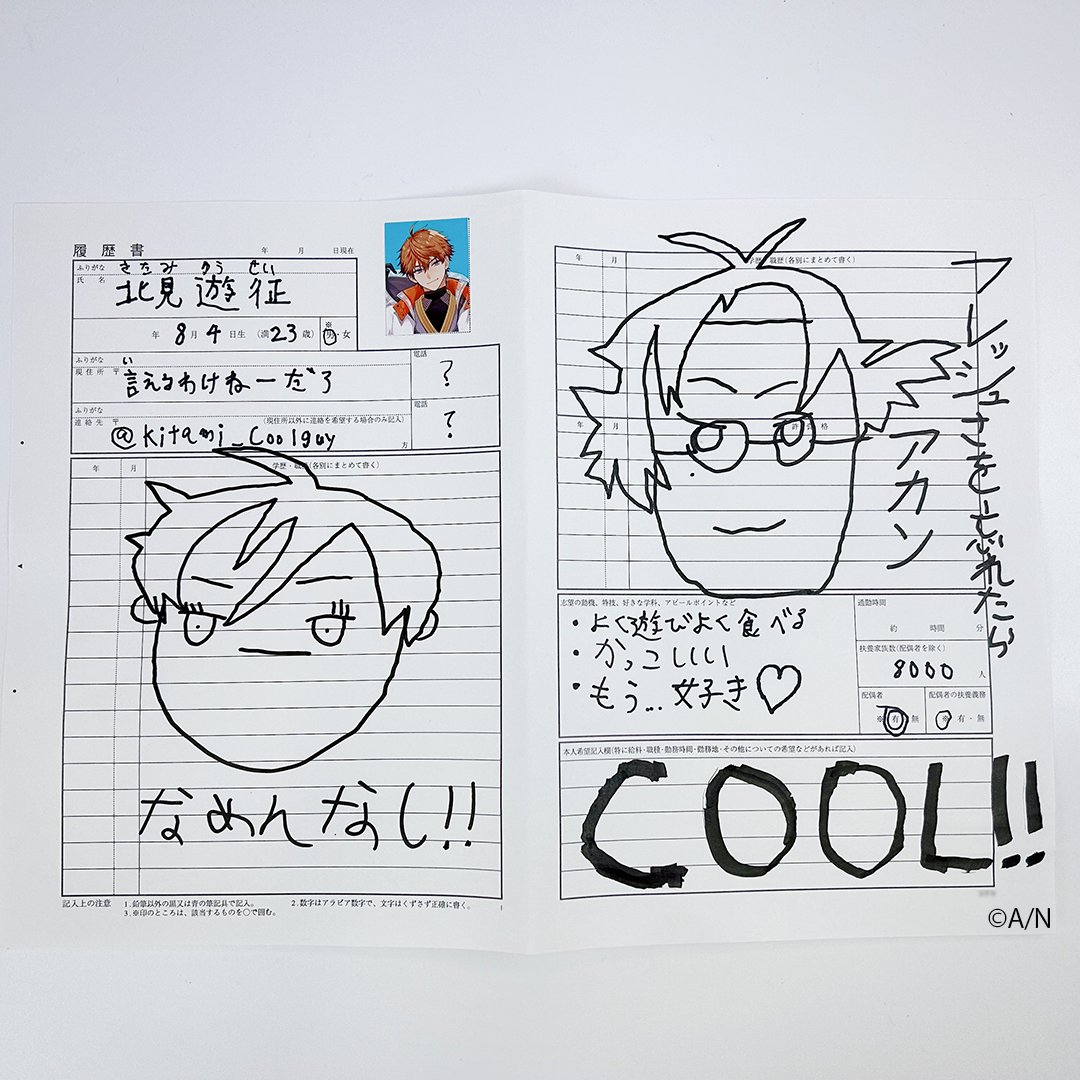 履歴書
年 月 日現在
ふりがな きたみ ゆうせい
氏名 北見遊征
年 8月4日生 (満23歳) ※男・女
ふりがな い
現住所 〒 言えるわけねーだろ
電話 ?
ふりがな
連絡先 〒 (現住所以外に連絡を希望する場合のみ記入)
@kitami_Coolguy 方
電話 ?
年 月 学歴・職歴(各別にまとめて書く)
なめんなし!!
記入上の注意 1.鉛筆以外の黒又は青の筆記具で記入。 2.数字はアラビア数字で、文字はくずさず正確に書く。
3.※印のところは、該当するものを○で囲む。
年 月 学歴・職歴(各別にまとめて書く)
フレッシュさを忘れたら
アカン
年 月 許・資格
志望の動機、特技、好きな学科、アピールポイントなど
・よく遊びよく食べる
・かっこいいい
・もう...女子き♡
通勤時間
約 時間 分
扶養家族数(配偶者を除く)
8000人
配偶者
※有・無
配偶者の扶養義務
※有・無
本人希望記入欄(特に給料・職種・勤務時間・勤務地・その他についての希望などがあれば記入)
COOL!!
©A/N